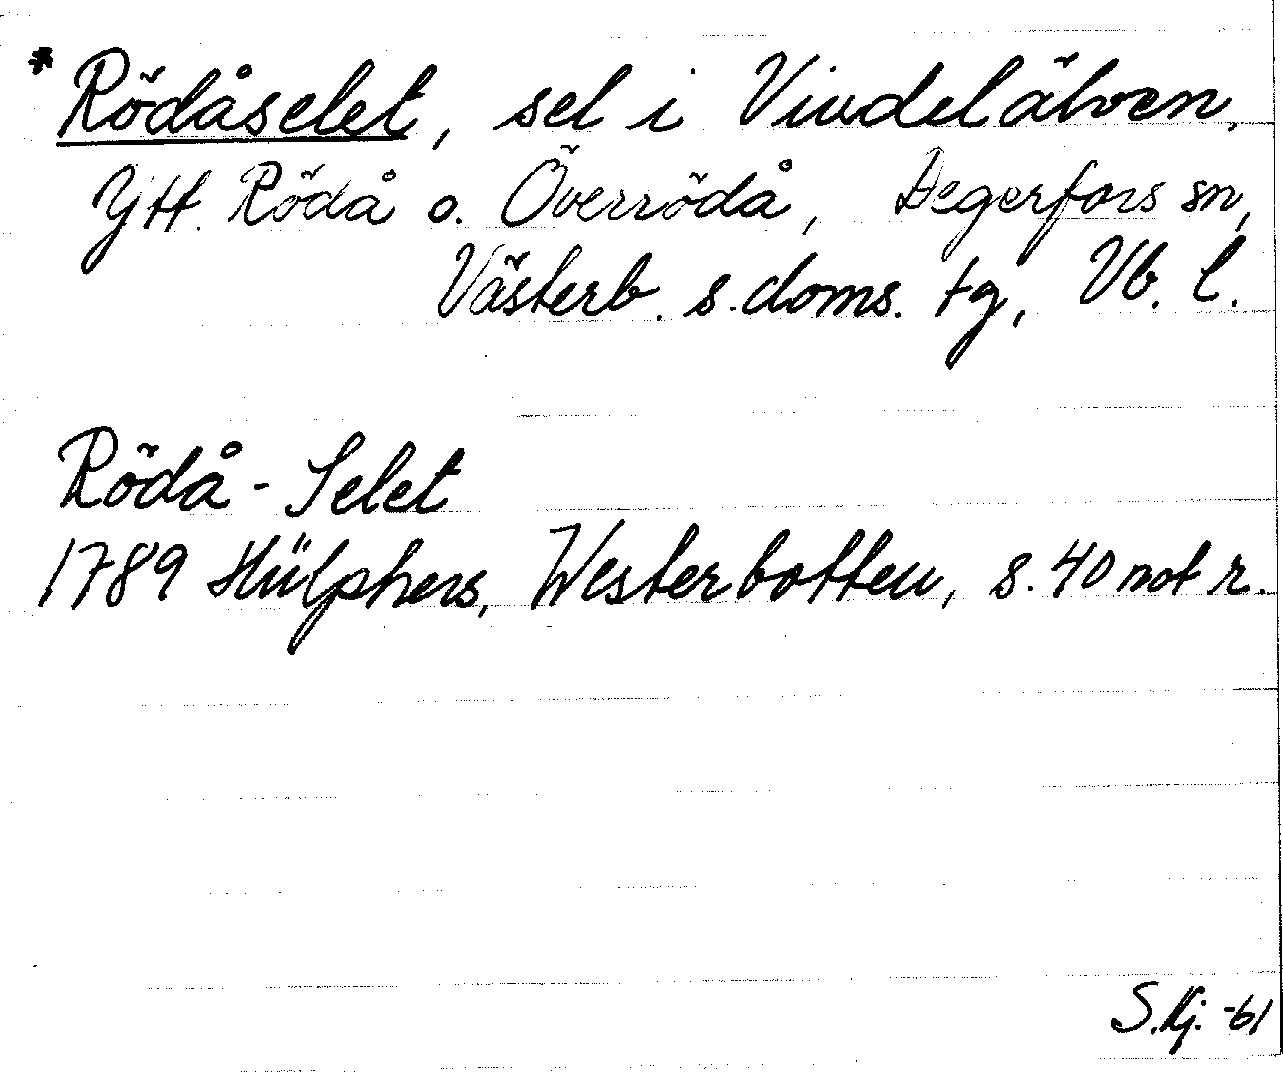 * Rödåselet, sel i Vindelälven,
Ytt. Rödå o. Överrödå, Degerfors sn,
Västerb. s. doms. tg, Vb. l.
Rödå-Selet
1789 Hülphers, Westerbotten, s. 40 not r.
S.Kj. -61